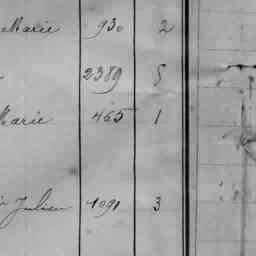 Marie 930 2
2389 5
Marie 465 1
Julien 1091 3